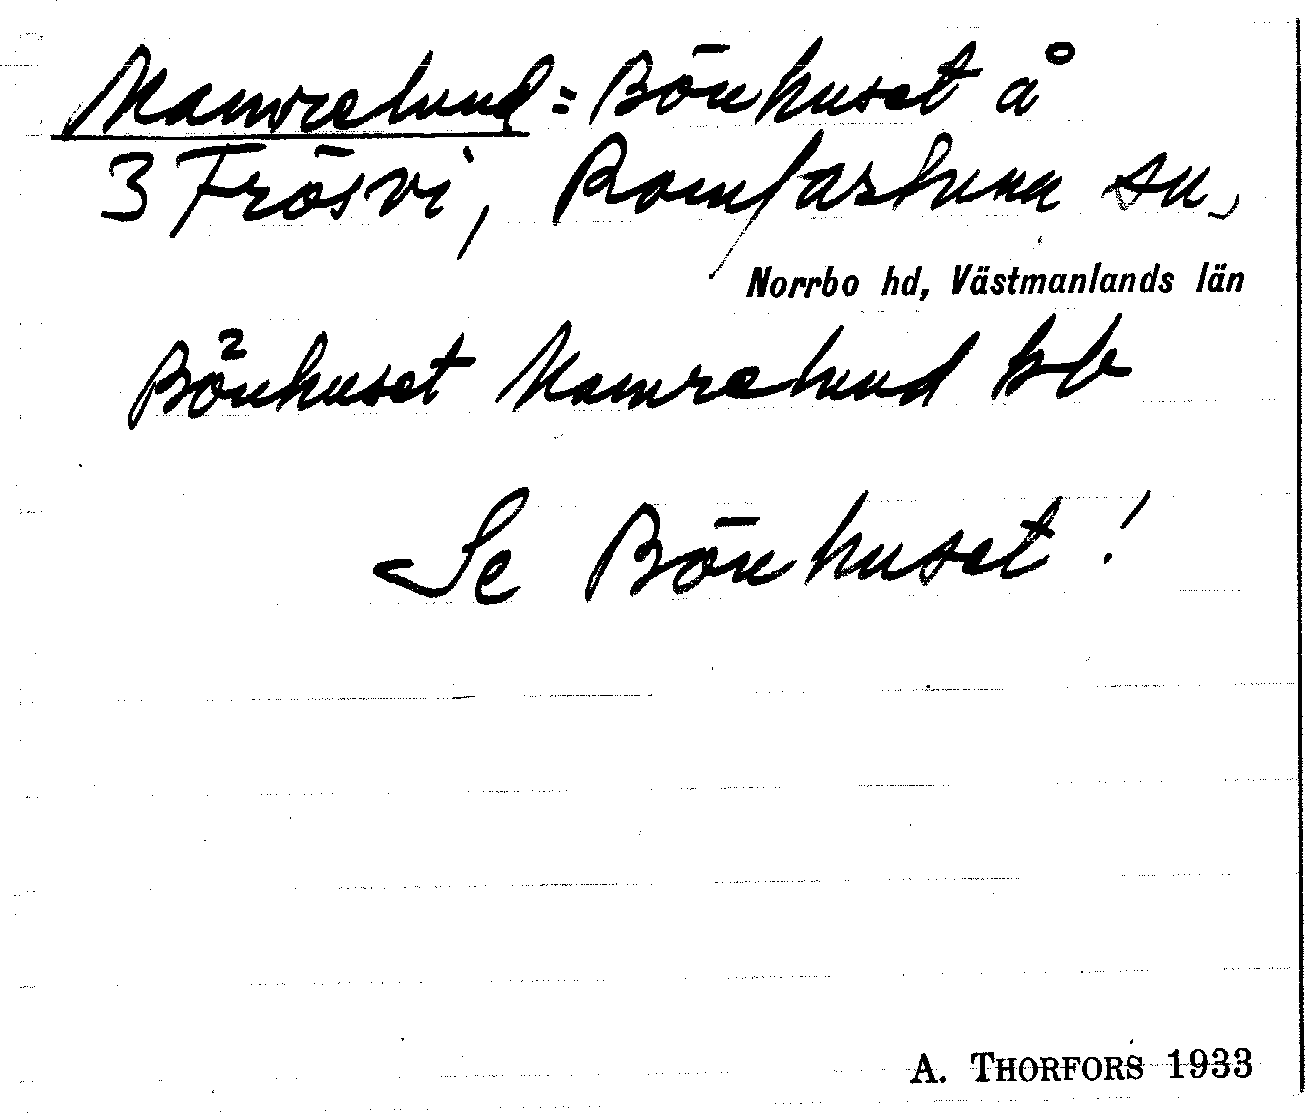 Mamrelund = Bönhuset å
3 Frösvi, Romfartuna sn,
Norrbo hd, Västmanlands län
Bönhuset Mamrelund
Se Bönhuset!
A. THORFORS 1933